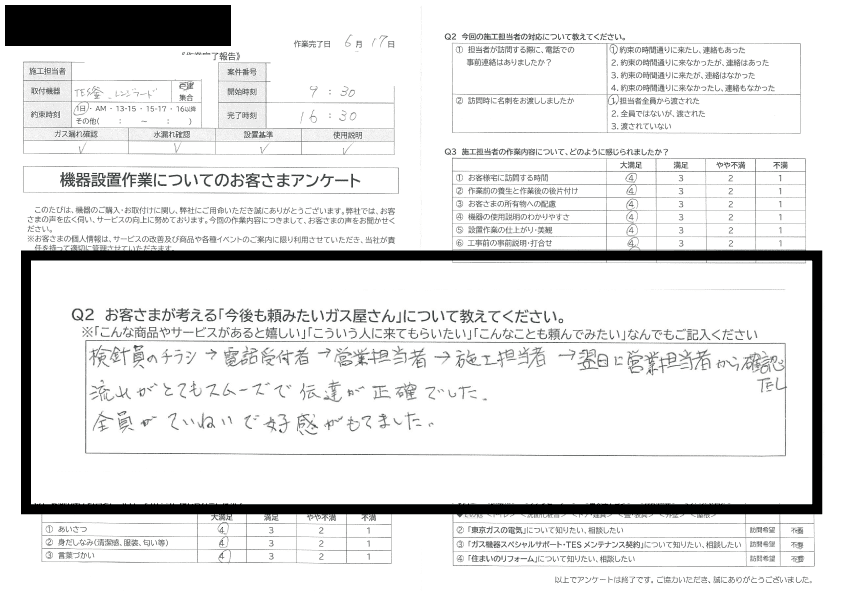 作業完了日 6月17日
《作業完了報告》
施工担当者
案件番号
取付機器 TES釜、レンジフード 戸建 集合
開始時刻 9:30
約束時刻 1日・AM・13-15・15-17・16以降
その他( : ~ : )
完了時刻 16:30
ガス漏れ確認 水漏れ確認 設置基準 使用説明
機器設置作業についてのお客さまアンケート
このたびは、機器のご購入・お取付けに関し、弊社にご用命いただき誠にありがとうございます。弊社では、お客
さまの声を広く伺い、サービスの向上に努めております。今回の作業内容につきまして、お客さまの声をお聞かせく
ださい。
※お客さまの個人情報は、サービスの改善及び商品や各種イベントのご案内に限り利用させていただき、当社が責
任を持って適切に管理させていただきます。
Q2 今回の施工担当者の対応について教えてください。
① 担当者が訪問する際に、電話での
事前連絡はありましたか?
1. 約束の時間通りに来たし、連絡もあった
2. 約束の時間通りに来なかったが、連絡はあった
3. 約束の時間通りに来たが、連絡はなかった
4. 約束の時間通りに来なかったし、連絡もなかった
② 訪問時に名刺をお渡ししましたか
1. 担当者全員から渡された
2. 全員ではないが、渡された
3. 渡されていない
Q3 施工担当者の作業内容について、どのように感じられましたか?
大満足 満足 やや不満 不満
① お客様宅に訪問する時間 4 3 2 1
② 作業前の養生と作業後の後片付け 4 3 2 1
③ お客さまの所有物への配慮 4 3 2 1
④ 機器の使用説明のわかりやすさ 4 3 2 1
⑤ 設置作業の仕上がり・美観 4 3 2 1
⑥ 工事前の事前説明・打合せ 4 3 2 1
Q2 お客さまが考える「今後も頼みたいガス屋さん」について教えてください。
※「こんな商品やサービスがあると嬉しい」「こういう人に来てもらいたい」「こんなことも頼んでみたい」なんでもご記入ください
検針員のチラシ→電話受付者→営業担当者→施工担当者→翌日に営業担当者から確認
TEL
流れがとてもスムーズで伝達が正確でした。
全員がていねいで好感がもてました。
大満足 満足 やや不満 不満
① あいさつ 4 3 2 1
② 身だしなみ(清潔感、服装、匂い等) 4 3 2 1
③ 言葉づかい 4 3 2 1
② 「東京ガスの電気」について知りたい、相談したい 訪問希望 不要
③ 「ガス機器スペシャルサポート・TESメンテナンス契約」について知りたい、相談したい 訪問希望 不要
④ 「住まいのリフォーム」について知りたい、相談したい 訪問希望 不要
以上でアンケートは終了です。ご協力いただき、誠にありがとうございました。